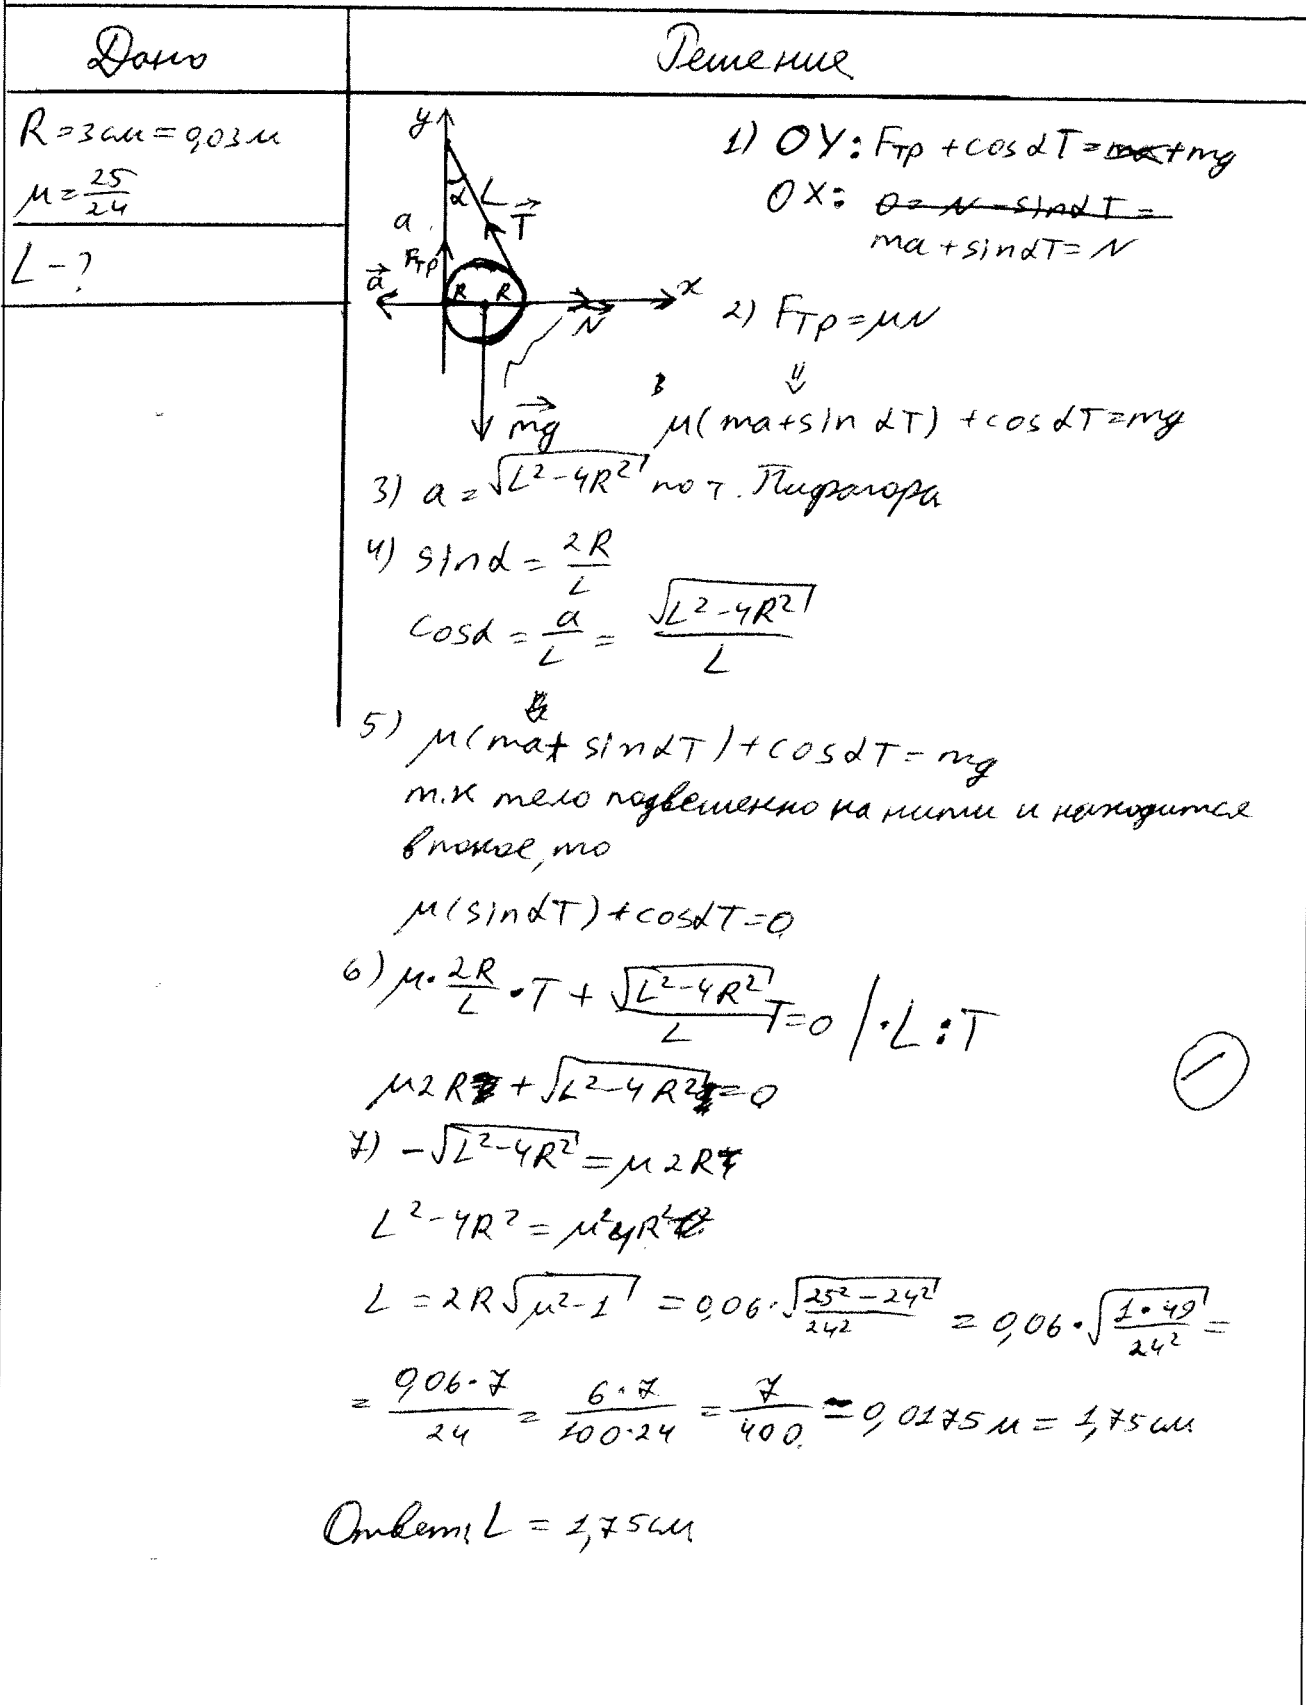 Дано
Решение
R = 3 см = 0,03 м
μ = 25/24
L - ?
y
α
L
T
a
Fтр
a
R R
x
N
mg
1) OY: Fтр + cosαT = ma + mg
OX: 0 = N - sinαT =
ma + sinαT = N
2) Fтр = μN
⇓
μ(ma + sinαT) + cosαT = mg
3) a = √(L² - 4R²) по т. Пифагора
4) sinα = 2R/L
cosα = a/L = √(L² - 4R²)/L
5) μ(ma + sinαT) + cosαT = mg
т.к тело подвешенно на нити и находится
в покое, то
μ(sinαT) + cosαT = 0
6) μ · 2R/L · T + √(L² - 4R²)/L T = 0 / · L : T
μ2R + √(L² - 4R²) = 0
7) -√(L² - 4R²) = μ2R
L² - 4R² = μ²4R²
L = 2R√(μ² - 1) = 0,06 · √((25² - 24²)/24²) = 0,06 · √((1 · 49)/24²) =
= (0,06 · 7)/24 = (6 · 7)/(100 · 24) = 7/400 = 0,0175 м = 1,75 см
Ответ: L = 1,75 см